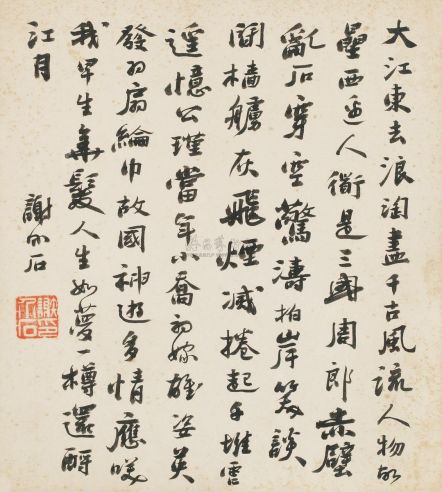 大江東去浪淘盡千古風流人物故
壘西邊人衜是三國周郎赤壁
亂石穿空驚濤拍岸笑談
間檣艣灰飛煙滅捲起千堆雪
遙憶公瑾當年小喬初嫁雄姿英
發羽扇綸巾故國神遊多情應笑
我早生華髮人生如夢一樽還酹
江月
謝介石